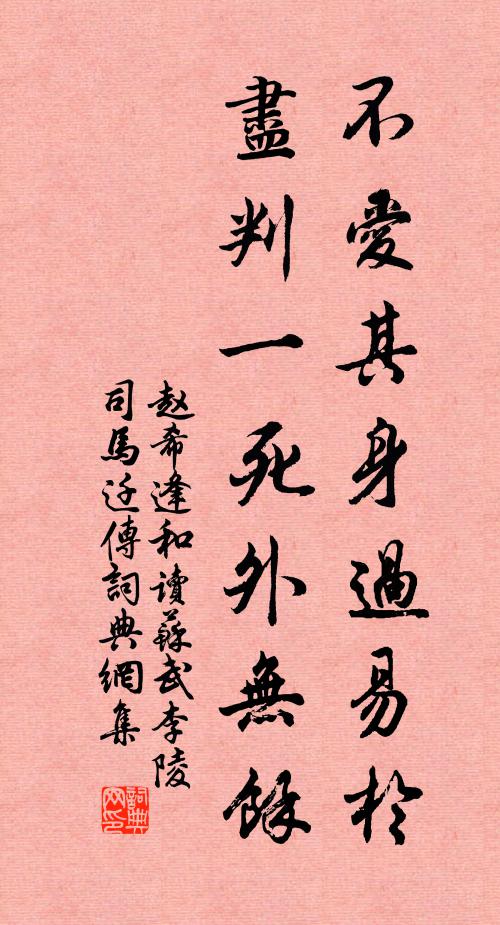 不愛其身過易於
盡判一死外無餘
赵希逢和读蘇武李陵
司馬迁傳詞典網集
詞典网印